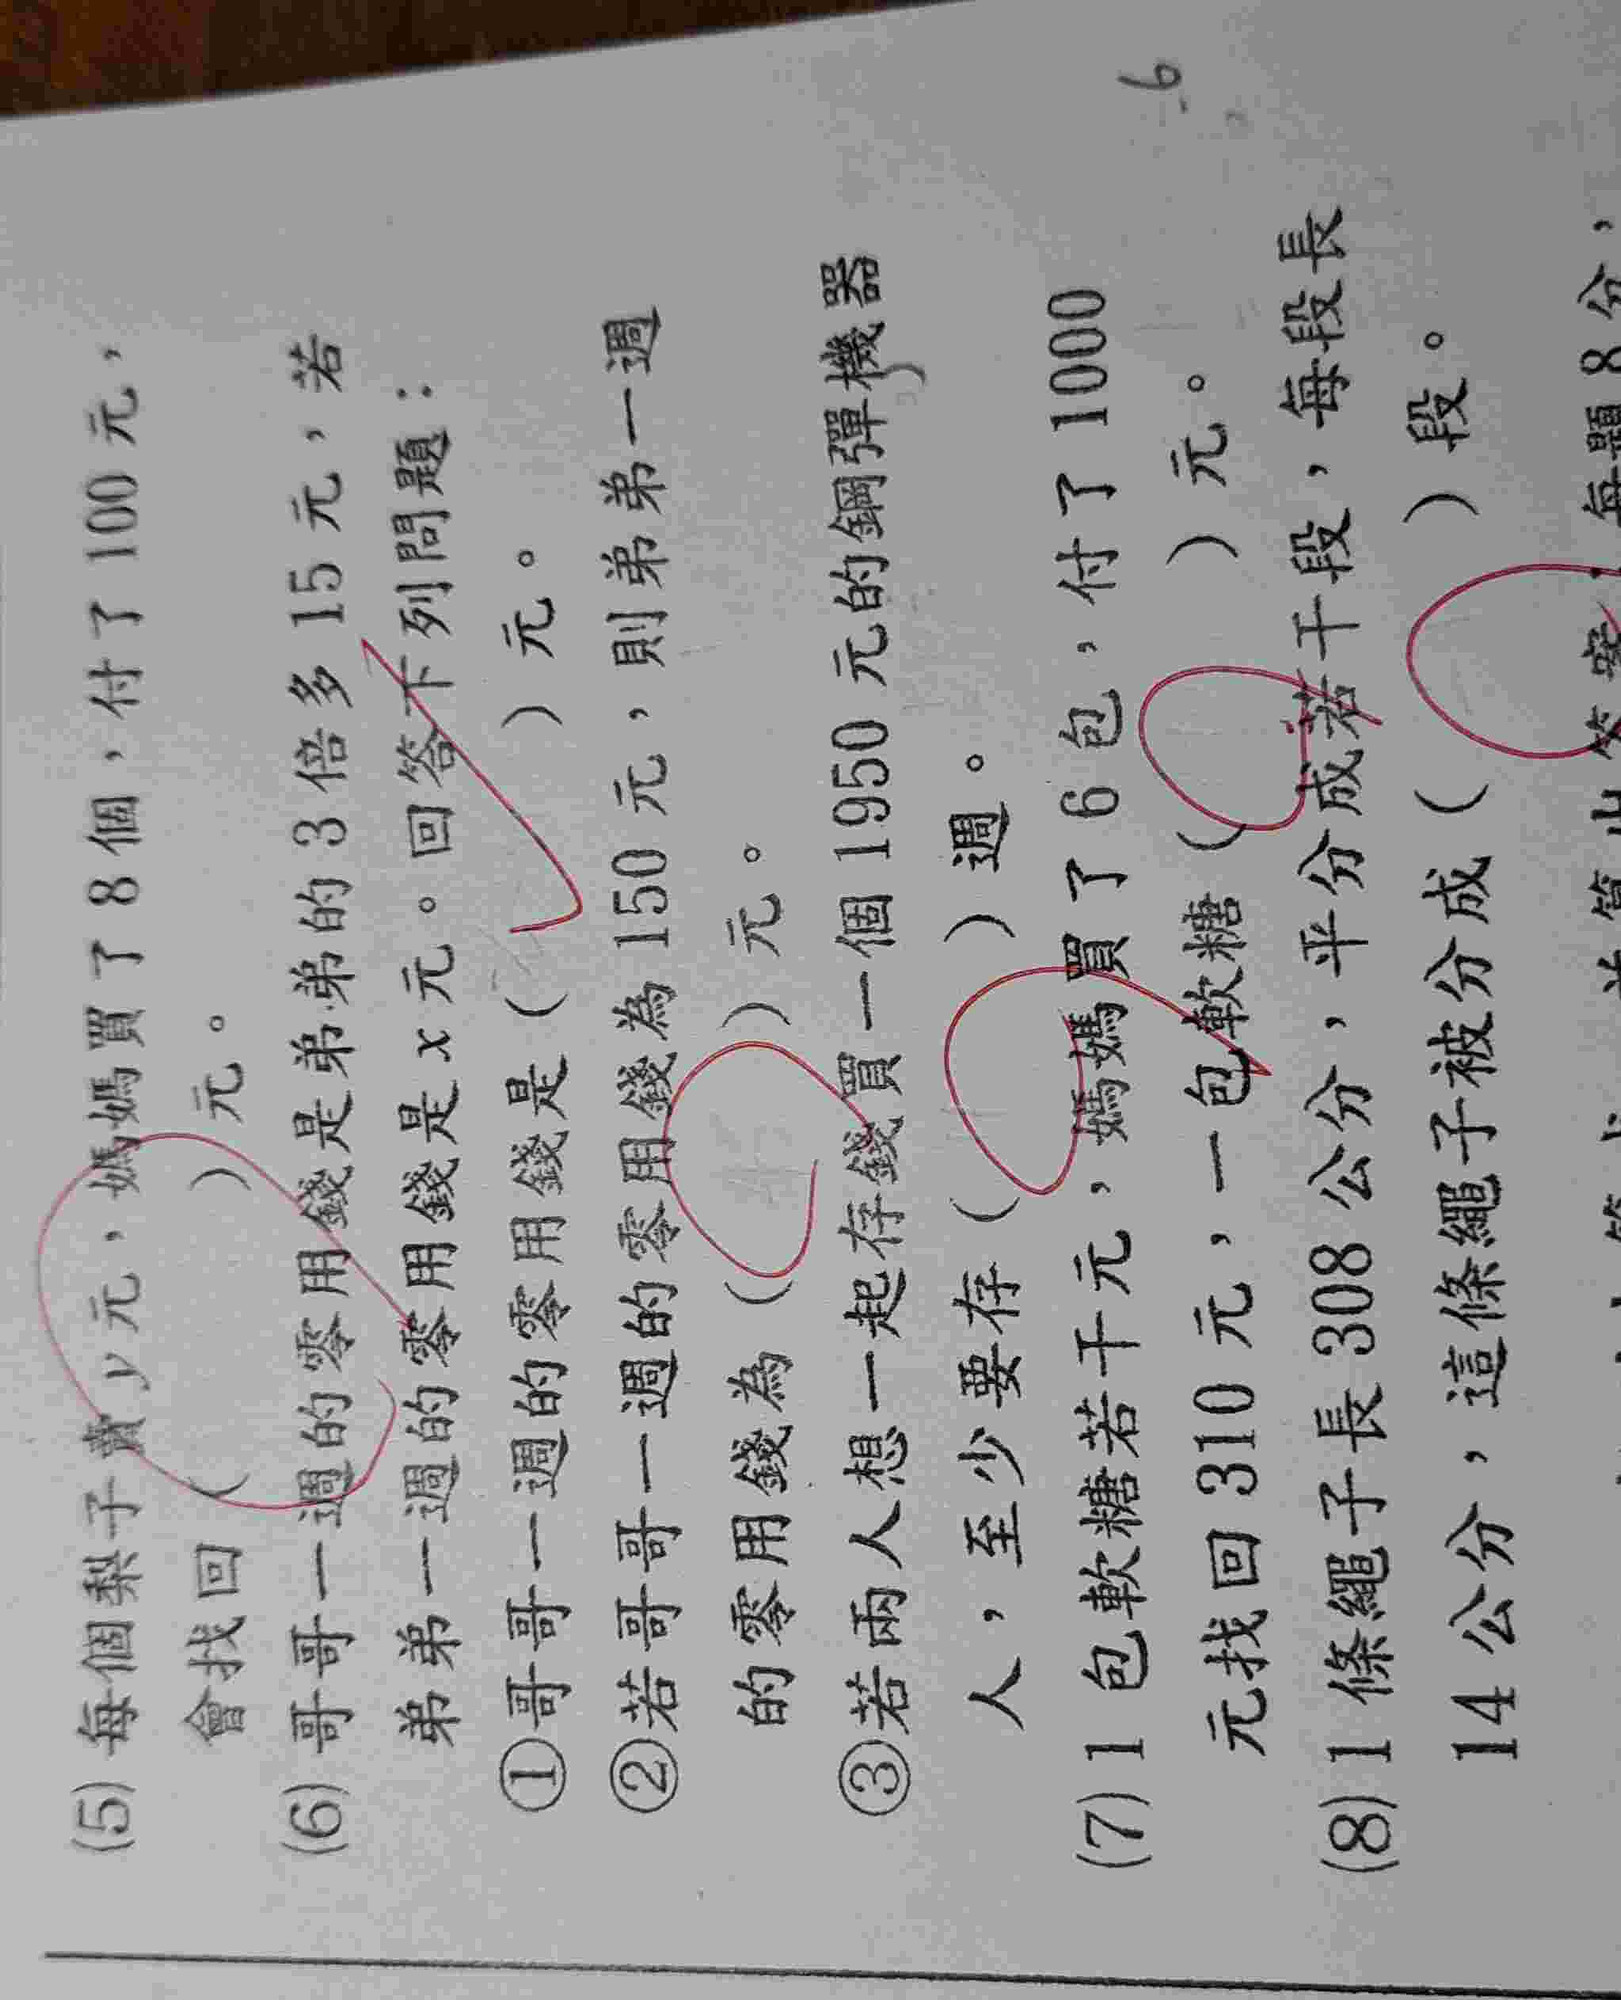 (5) 每個梨子賣 y 元，媽媽買了 8 個，付了 100 元，
會找回（　　　）元。
(6) 哥哥一週的零用錢是弟弟的 3 倍多 15 元，若
弟弟一週的零用錢是 x 元。回答下列問題：
①哥哥一週的零用錢是（　　　）元。
②若哥哥一週的零用錢為 150 元，則弟弟一週
的零用錢為（　　　）元。
③若兩人想一起存錢買一個 1950 元的鋼彈機器
人，至少要存（　　　）週。
(7) 1 包軟糖若干元，媽媽買了 6 包，付了 1000
元找回 310 元，一包軟糖（　　　）元。
(8) 1 條繩子長 308 公分，平分成若干段，每段長
14 公分，這條繩子被分成（　　　）段。
每題 8 分，